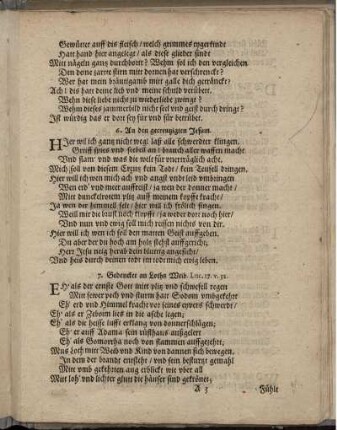 Gewürtet auff dis fleisch / welch grimmes
Hatt hand hier angelegt / als diese glieder sindt
Mitt nägeln gantz durchbort? Wehm sol ich den vergleichen
Den dehme zarte stirn mitt dornen hat verschrenckt?
Wer hat mein bräutgamb mitt galle dich getränckt?
Ach! dis hatt deine lieb vnd meine schuld verübett.
Wehn diese liebe nicht zu wiederliebe zwingt?
Wehm dieses jammerbild nicht seel vnd geist durch dringt?
Ist würdig das er dort sey für vnd für betrübet.
6. An den gecreutzigten Jesum.
HIer wil ich gantz nicht weg! laß alle schwerdter klingen.
Greiff spies vnd sebell an! brauch aller waffen macht
Vnd flam' vnd was die welt für vnerträglich acht.
Mich soll von diesem Creutz kein Todt / kein Teufell dringen.
Hier will ich wen mich ach vnd angst vnd leid vmbringen
Wen erd' vnd meer auffreist / ja wen der donner macht /
Mitt dunckelrotem plitz auff meinem kopffe kracht /
Ja wen der himmell felt / hier will ich frölich singen.
Weill mir die brust noch klopfft / ja weder dort noch hier /
Vnd nun vnd ewig soll mich reissen nichts von dir.
Hier will ich wen ich soll den matten Geist auffgeben.
Du aber der du hoch am holtz stehst auffgericht;
Herr Jesu neig herab dein blutig angesicht/
Vnd heis durch deinen todt im todt mich ewig leben.
7. Gedencket an Loths Weib. Luc. 17. v. 32.
EH' als der ernste Gott mitt plitz vnd schwefell regen
Mitt fewer pech vnd sturm hatt Sodom vmbgekehrt
Eh' erd vnd Himmel kracht vor seines eyvers schwerdt/
Eh' als er Zeboim lies in die asche legen;
Eh' als die heisse lufft erklang von donnerschlägen;
Eh' er auff Adama sein lusthaus
Eh' als Gomorrha noch von flammen auffgezehrt,
Mus Loth mitt Weib vnd Kind von dannen sich bewegen.
In dem der brande entsteht / vnd sein bestürtzt gemahl
Mitt vmb gekehrten aug erblickt wie vber all
Mitt loh' vnd lichter glutt die häuser sind gekrönet;
A 3 Fühlt